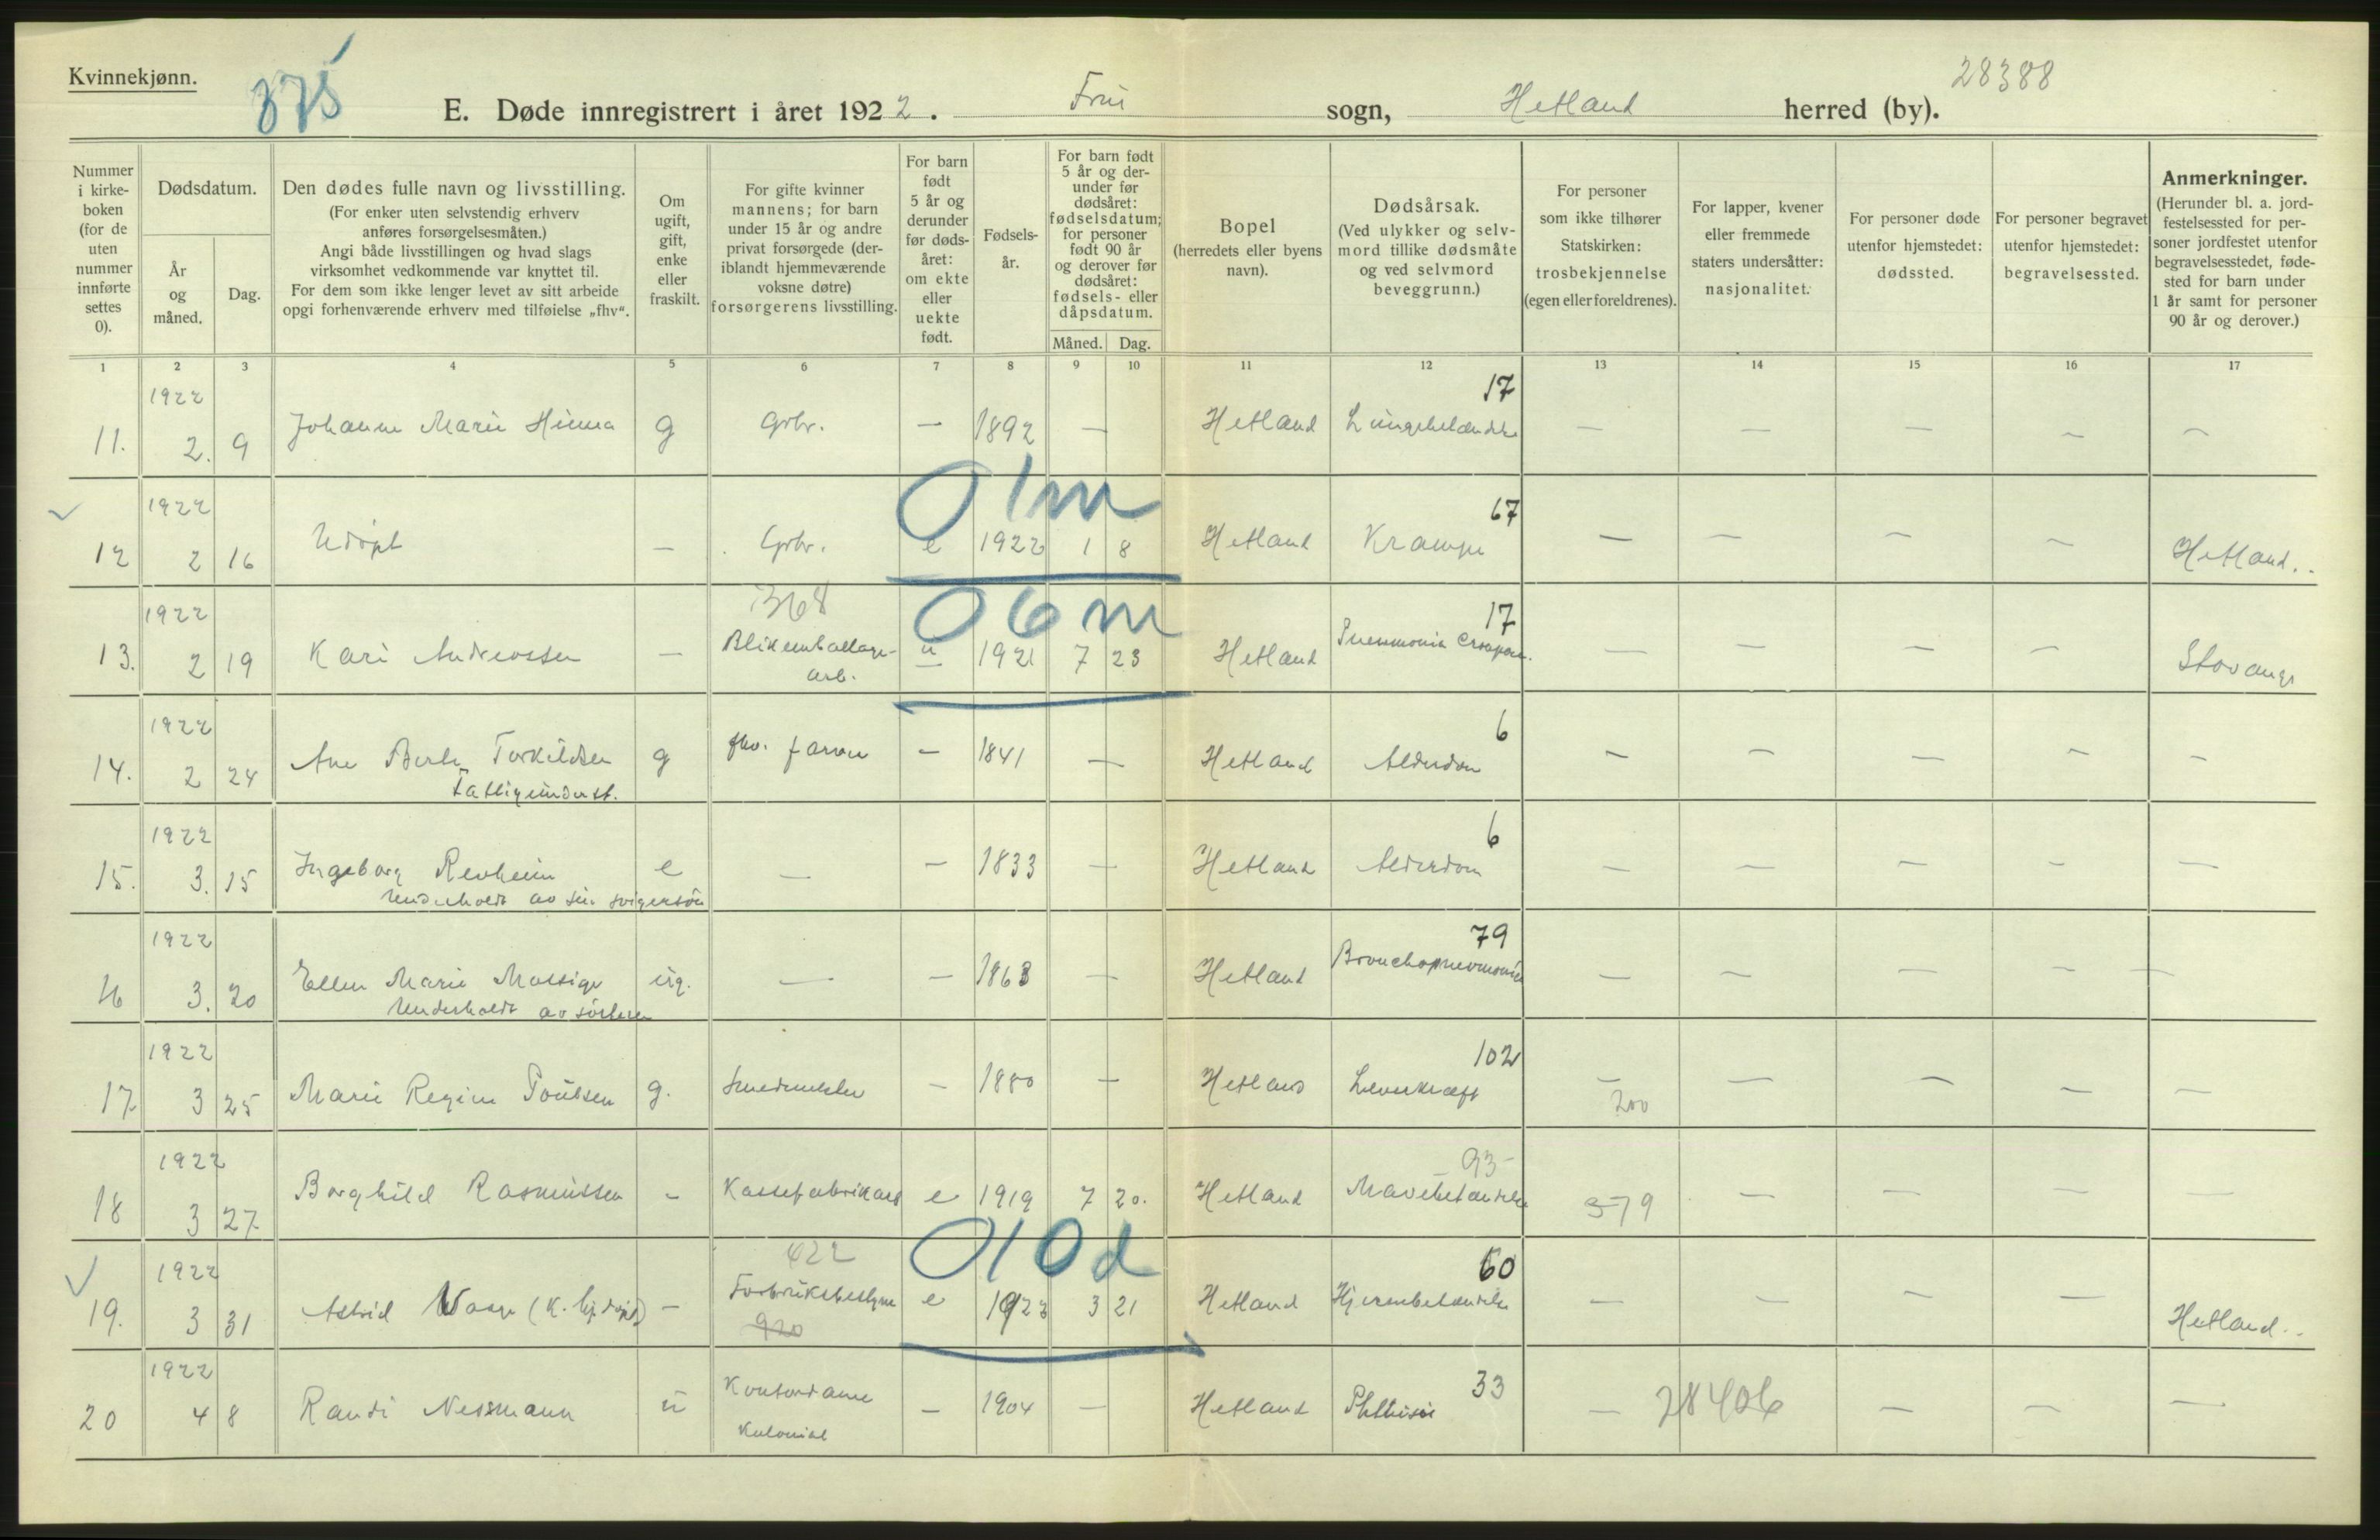 Kvinnekjønn.
375
28388
E. Døde innregistrert i året 1922. Frue sogn, Hetland herred (by).
Nummer i kirke-boken (for de uten nummer innførte settes 0).
Dødsdatum.
År og måned.
Dag.
Den dødes fulle navn og livsstilling.
(For enker uten selvstendig erhverv anføres forsørgelsesmåten.)
Angi både livsstillingen og hvad slags virksomhet vedkommende var knyttet til.
For dem som ikke lenger levet av sitt arbeide opgi forhenværende erhverv med tilføielse „fhv“.
Om ugift, gift, enke eller fraskilt.
For gifte kvinner mannens; for barn under 15 år og andre privat forsørgede (der-iblandt hjemmeværende voksne døtre) forsørgerens livsstilling.
For barn født 5 år og derunder før døds-året: om ekte eller uekte født.
Fødsels-år.
For barn født 5 år og der-under før dødsåret: fødselsdatum; for personer født 90 år og derover før dødsåret: fødsels- eller dåpsdatum.
Måned.
Dag.
Bopel
(herredets eller byens navn).
Dødsårsak.
(Ved ulykker og selv-mord tillike dødsmåte og ved selvmord beveggrunn.)
For personer som ikke tilhører Statskirken: trosbekjennelse (egen eller foreldrenes).
For lapper, kvener eller fremmede staters undersåtter: nasjonalitet.
For personer døde utenfor hjemstedet: dødssted.
For personer begravet utenfor hjemstedet: begravelsessted.
Anmerkninger.
(Herunder bl. a. jord-festelsessted for per-soner jordfestet utenfor begravelsesstedet, føde-sted for barn under 1 år samt for personer 90 år og derover.)
1 2 3 4 5 6 7 8 9 10 11 12 13 14 15 16 17
1922 17
11. 2. 9 Johanne Marie Hinna g Grbr. — 1892 — Hetland Lungebetændelse — — — — —
0 1 m
1922 67
12 2 16 Udøpt — Grbr. e 1922 1 8 Hetland Krampe — — — — Hetland.
368 0 6 m
1922 17
13. 2 19 Kari Andreassen — Blikemballage-arb. u 1921 7 23 Hetland Pneumonia crouposa. — — — — Stavanger
1922 6
14. 2 24 Ane Berte Torkildsen g fhv. farver — 1841 — Hetland Alderdom — — — — —
Fattigunderst.
1922 6
15. 3. 15 Ingeborg Revheim e — — 1833 — Hetland Alderdom — — — — —
Underholdt av sin svigersøn
1922 79
16 3. 20 Ellen Marie Mossige ug. — — 1863 — Hetland Bronchopneumonia — — — — —
Underholdt av søsteren
1922 102
17. 3 25 Marie Regine Poulsen g. Smedmester — 1880 — Hetland Leverkræft — — — — —
200
1922 93
18 3 27 Borghild Rasmussen - Kassefabrikarb e 1919 7 20. Hetland Mavebetændelse 379 — — — —
422 0 10 d
1922 60
19. 3 31 Astrid (K. hj.døpt) — Fabrikbestyrer e 1922 3 21 Hetland Hjernebetændelse — — — — Hetland.
920
1922 33
20 4 8 Randi Nessmann u Kontordame — 1904 — Hetland Phthisis — 28406 — — —
Kolonial